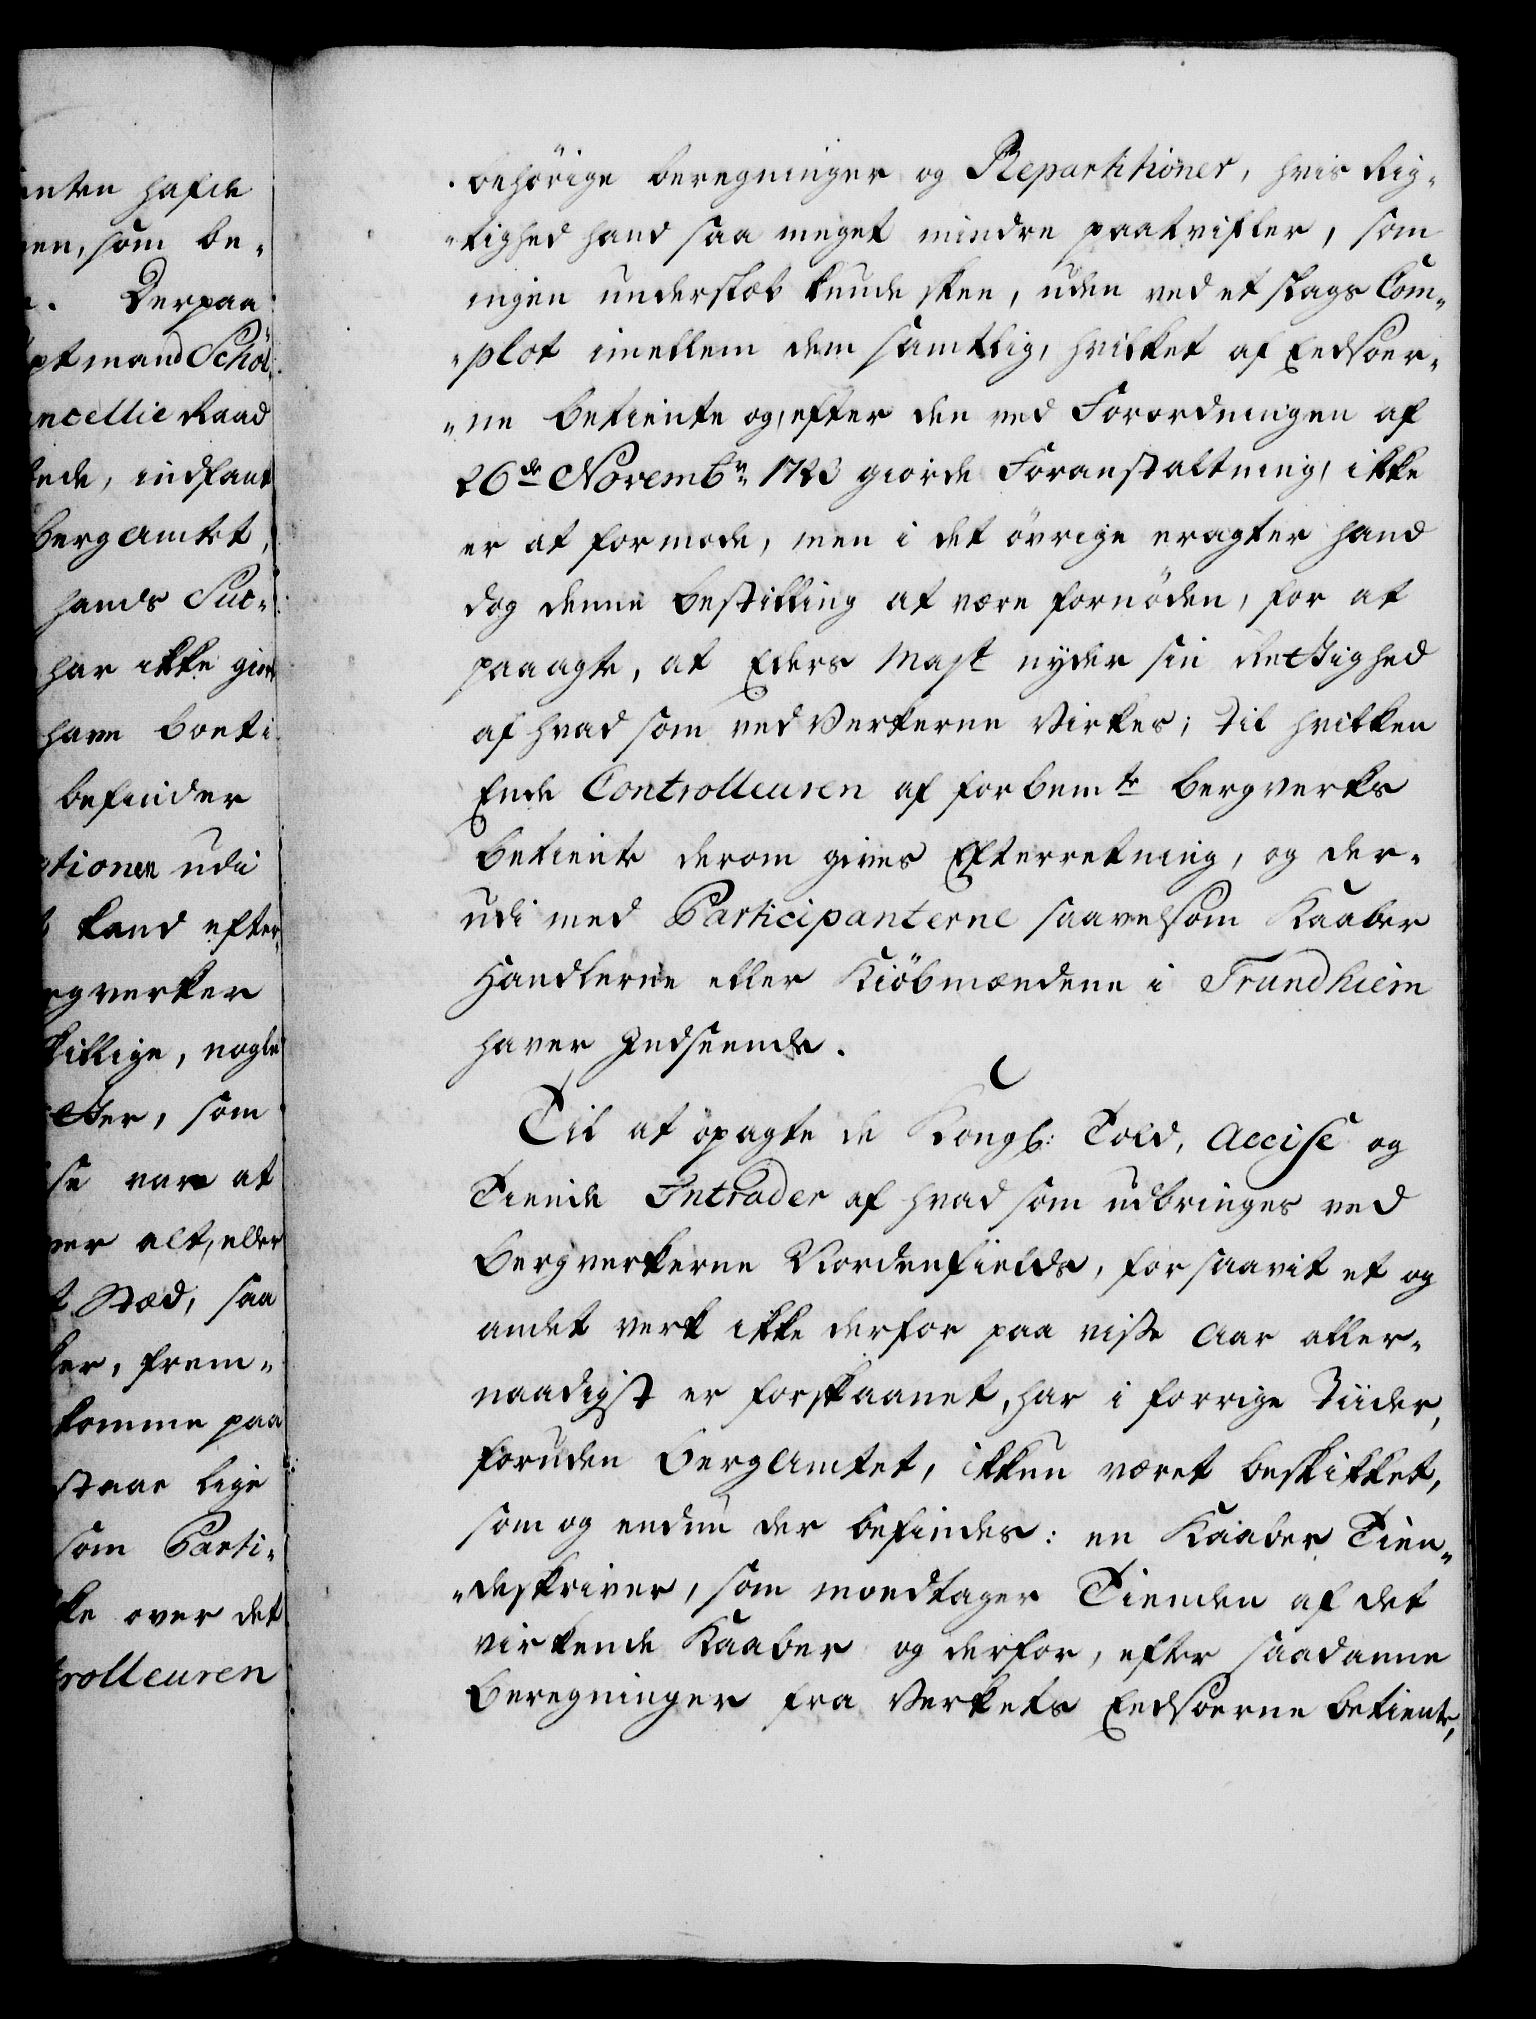 enten hafde
en, som be-
Derpaa
ptmand Schöl
ancellie Raad
ede, indfant
Bergamtet,
hands Suc-
har ikke giort
have boeti
befinder
tionen udi
kand efter-
rgverker
skillige, nogle
ter, som
se vare at
er alt, eller
t Stæd, saa
er, frem-
komme paa
staar lige
som Parti-
ke over det
trolleuren
behörige beregninger og Repartitioner, hvis Rig-
tighed hand saa meget mindre paatvifler, som
ingen underslæb kunde skee, uden ved et slags Com-
plot imellem dem samtlig, hvilket af Eedsoer-
ne betiente og, efter den ved Forordningen af
26de Novembr 1723 giorde Foranstaltning, ikke
er at formode, men i det övrige eragter hand
dog denne bestilling at være fornöden, for at
paaagte, at Eders Mayt nyder sin Rettighed
af hvad som ved Verkerne Virkes; Til hvilken
Ende Controlleuren af forbemte bergverks
betiente derom gives Efterretning, og der-
udi med Participanterne saavelsom Kaaber
Handlerne eller Kiöbmændene i Trundhiem
haver Indseende.
Til at opagte de Kongl: Told, Accise og
Tiende Intrader af hvad som udbringes ved
Bergverkerne Nordenfields, forsaavit et og
andet verk ikke derfor paa visse Aar aller-
naadigst er forskaanet, har i forrige Tiider,
foruden BergAmtet, ikkun været beskikket,
som og endnu der befindes: en Kaaber Tien-
deskriver, som modtager Tienden af det
virkende Kaaber og derfor, efter saadanne
Beregninger fra Verkets Eedsoerne betiente,